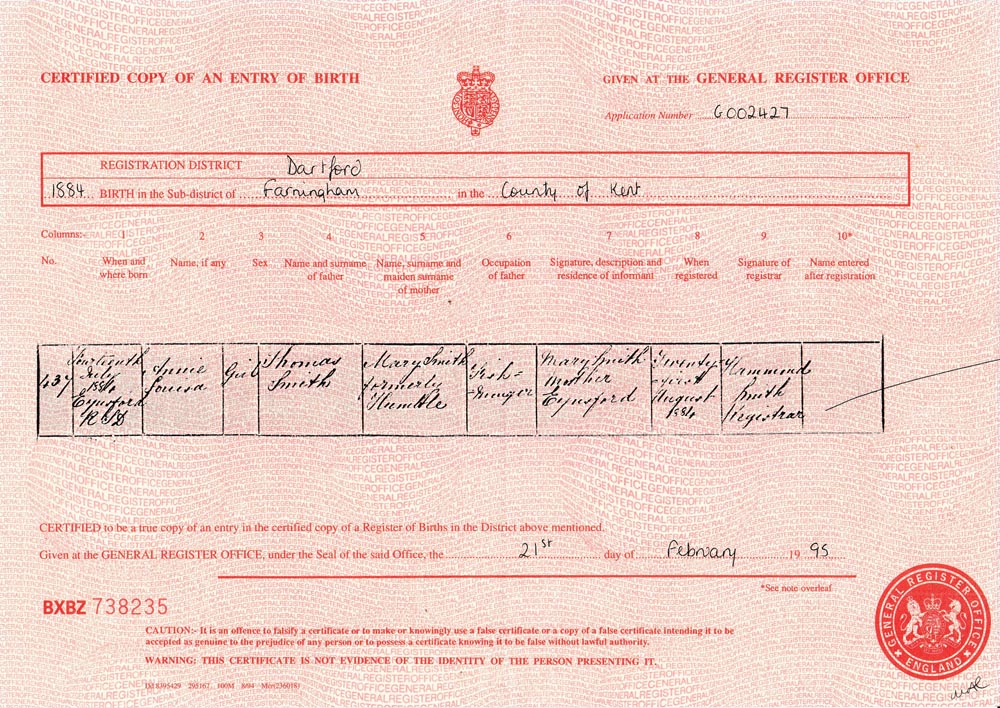 CERTIFIED COPY OF AN ENTRY OF BIRTH
GIVEN AT THE GENERAL REGISTER OFFICE
Application Number G002427
REGISTRATION DISTRICT Dartford
1884 BIRTH in the Sub-district of Farningham in the County of Kent
Columns:- 1 2 3 4 5 6 7 8 9 10*
No. When and where born Name, if any Sex Name and surname of father Name, surname and maiden surname of mother Occupation of father Signature, description and residence of informant When registered Signature of registrar Name entered after registration
437
Fourteenth
July
1884
Eynsford
R S D
Annie
Louisa
Girl
Thomas
Smith
Mary Smith
formerly
Humble
Fish=
=monger
Mary Smith
Mother
Eynsford
Twenty
=first
August
1884
Hammond
Smith
Registrar
CERTIFIED to be a true copy of an entry in the certified copy of a Register of Births in the District above mentioned.
Given at the GENERAL REGISTER OFFICE, under the Seal of the said Office, the 21st day of February 1995
*See note overleaf
BXBZ 738235
CAUTION:- It is an offence to falsify a certificate or to make or knowingly use a false certificate or a copy of a false certificate intending it to be
accepted as genuine to the prejudice of any person or to possess a certificate knowing it to be false without lawful authority.
WARNING: THIS CERTIFICATE IS NOT EVIDENCE OF THE IDENTITY OF THE PERSON PRESENTING IT.
GENERAL REGISTER OFFICE
ENGLAND